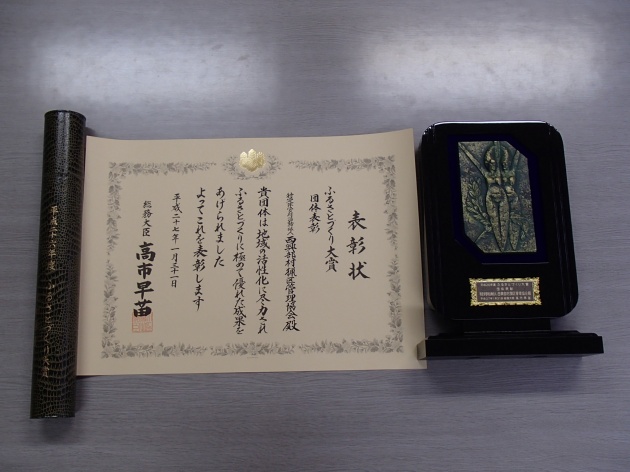 表彰状
ふるさとづくり大賞
団体表彰
特定非営利活動法人西興部村猟区管理協会殿
貴団体は地域の活性化に尽力され
ふるさとづくりに極めて優れた成果を
あげられました
よってこれを表彰します
平成二十七年一月三十一日
総務大臣 高市早苗
平成二十六年度